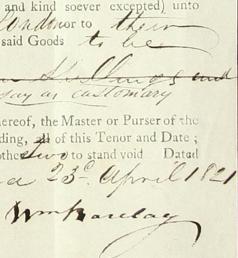 and kind soever excepted) unto
London or to their
said Goods to be
Shillings and
say as customary
hereof, the Master or Purser of the
ding, all of this Tenor and Date;
other two to stand void Dated
23d April 1821
Wm Barclay